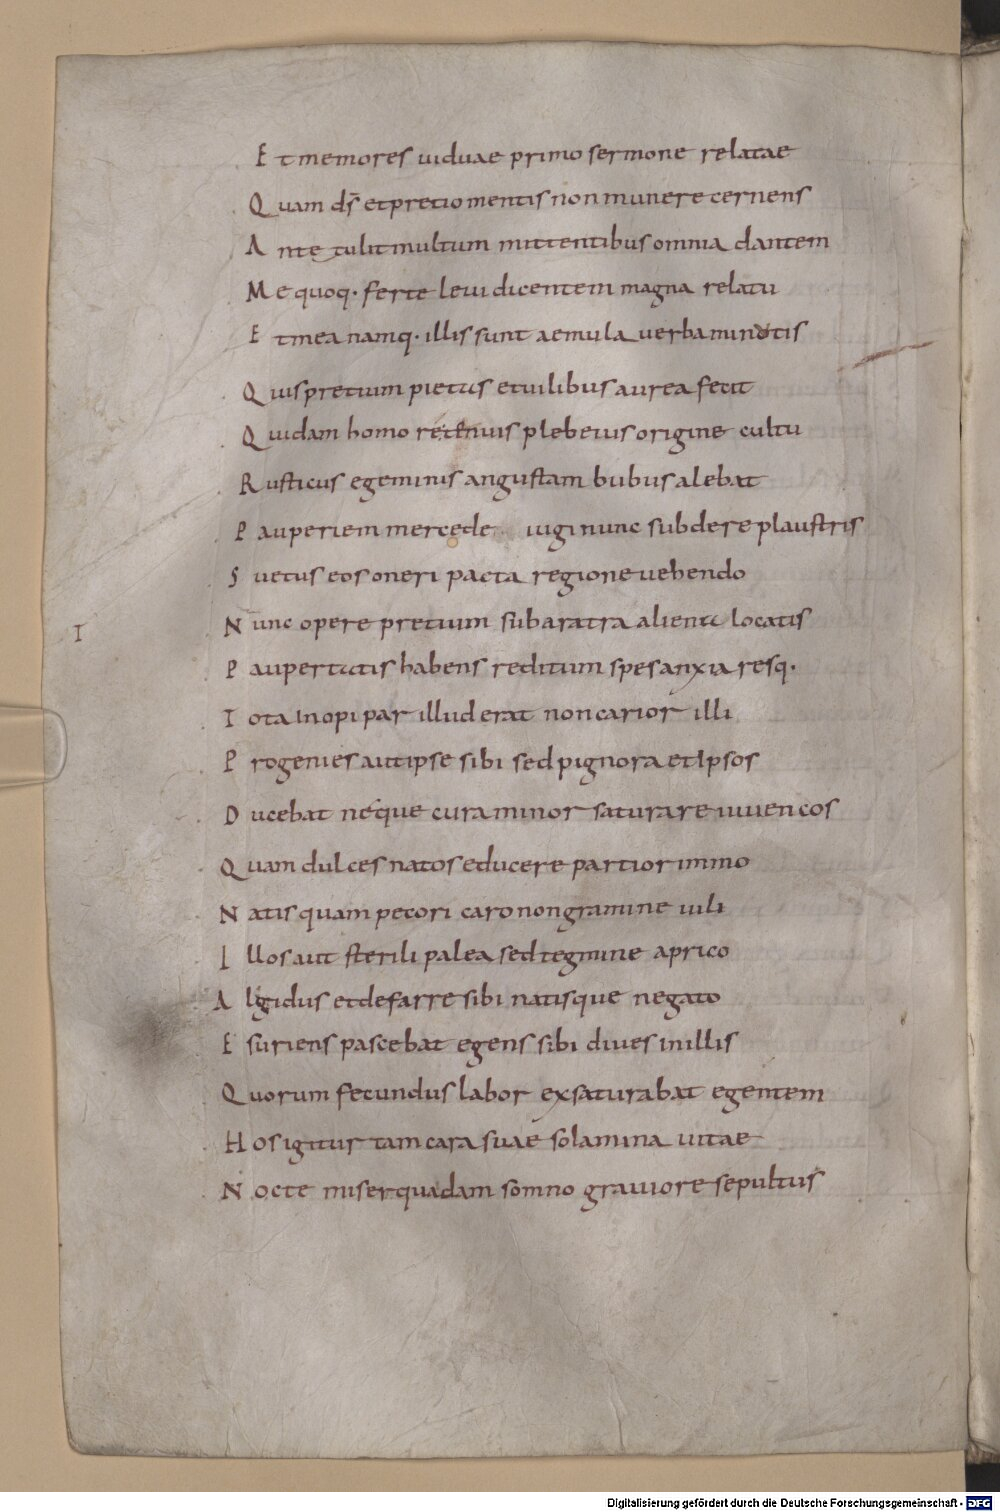 Et memores uiduae primo sermone relatae
Quam ds̄ et pretio mentis non munere cernens
Ante tulit multum mittentibus omnia dantem
Me quoq· ferte leui dicentem magna relatu
Et mea namq· illis sunt aemula uerba minotis
Quis pretium pietas et uilibus aurea fecit
Quidam homo re tenuis plebeius origine cultu
Rusticus e geminis angustam bubus alebat
Pauperiem mercede iugi nunc subdere plaustris
Suetus eos oneri pacta regione uehendo
I
Nunc opere pretium sub aratra aliena locatis
Paupertatis habens reditum spes anxia resq·
Tota inopi par illud erat non carior illi
Progenies aut ipse sibi sed pignora et ipsos
Ducebat neque cura minor saturare iuuencos
Quam dulces natos educere partior immo
Natis quam pecori caro non gramine uili
Illos aut sterili palea sed tegmine aprico
Algidus et de farre sibi natisque negato
Esuriens pascebat egens sibi diues in illis
Quorum fecundus labor exsaturabat egentem
Hos igitur tam cara suae solamina uitae
Nocte miser quadam somno grauiore sepultus
Digitalisierung gefördert durch die Deutsche Forschungsgemeinschaft - DFG